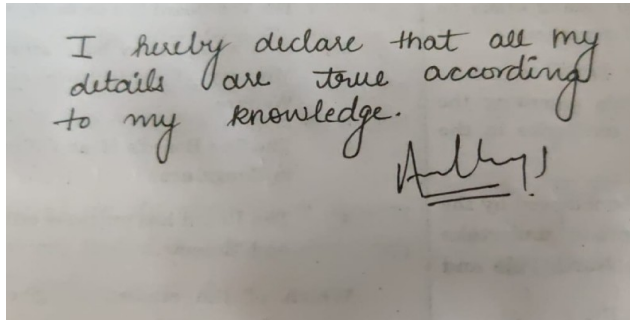 I hereby declare that all my
details are true according
to my knowledge.